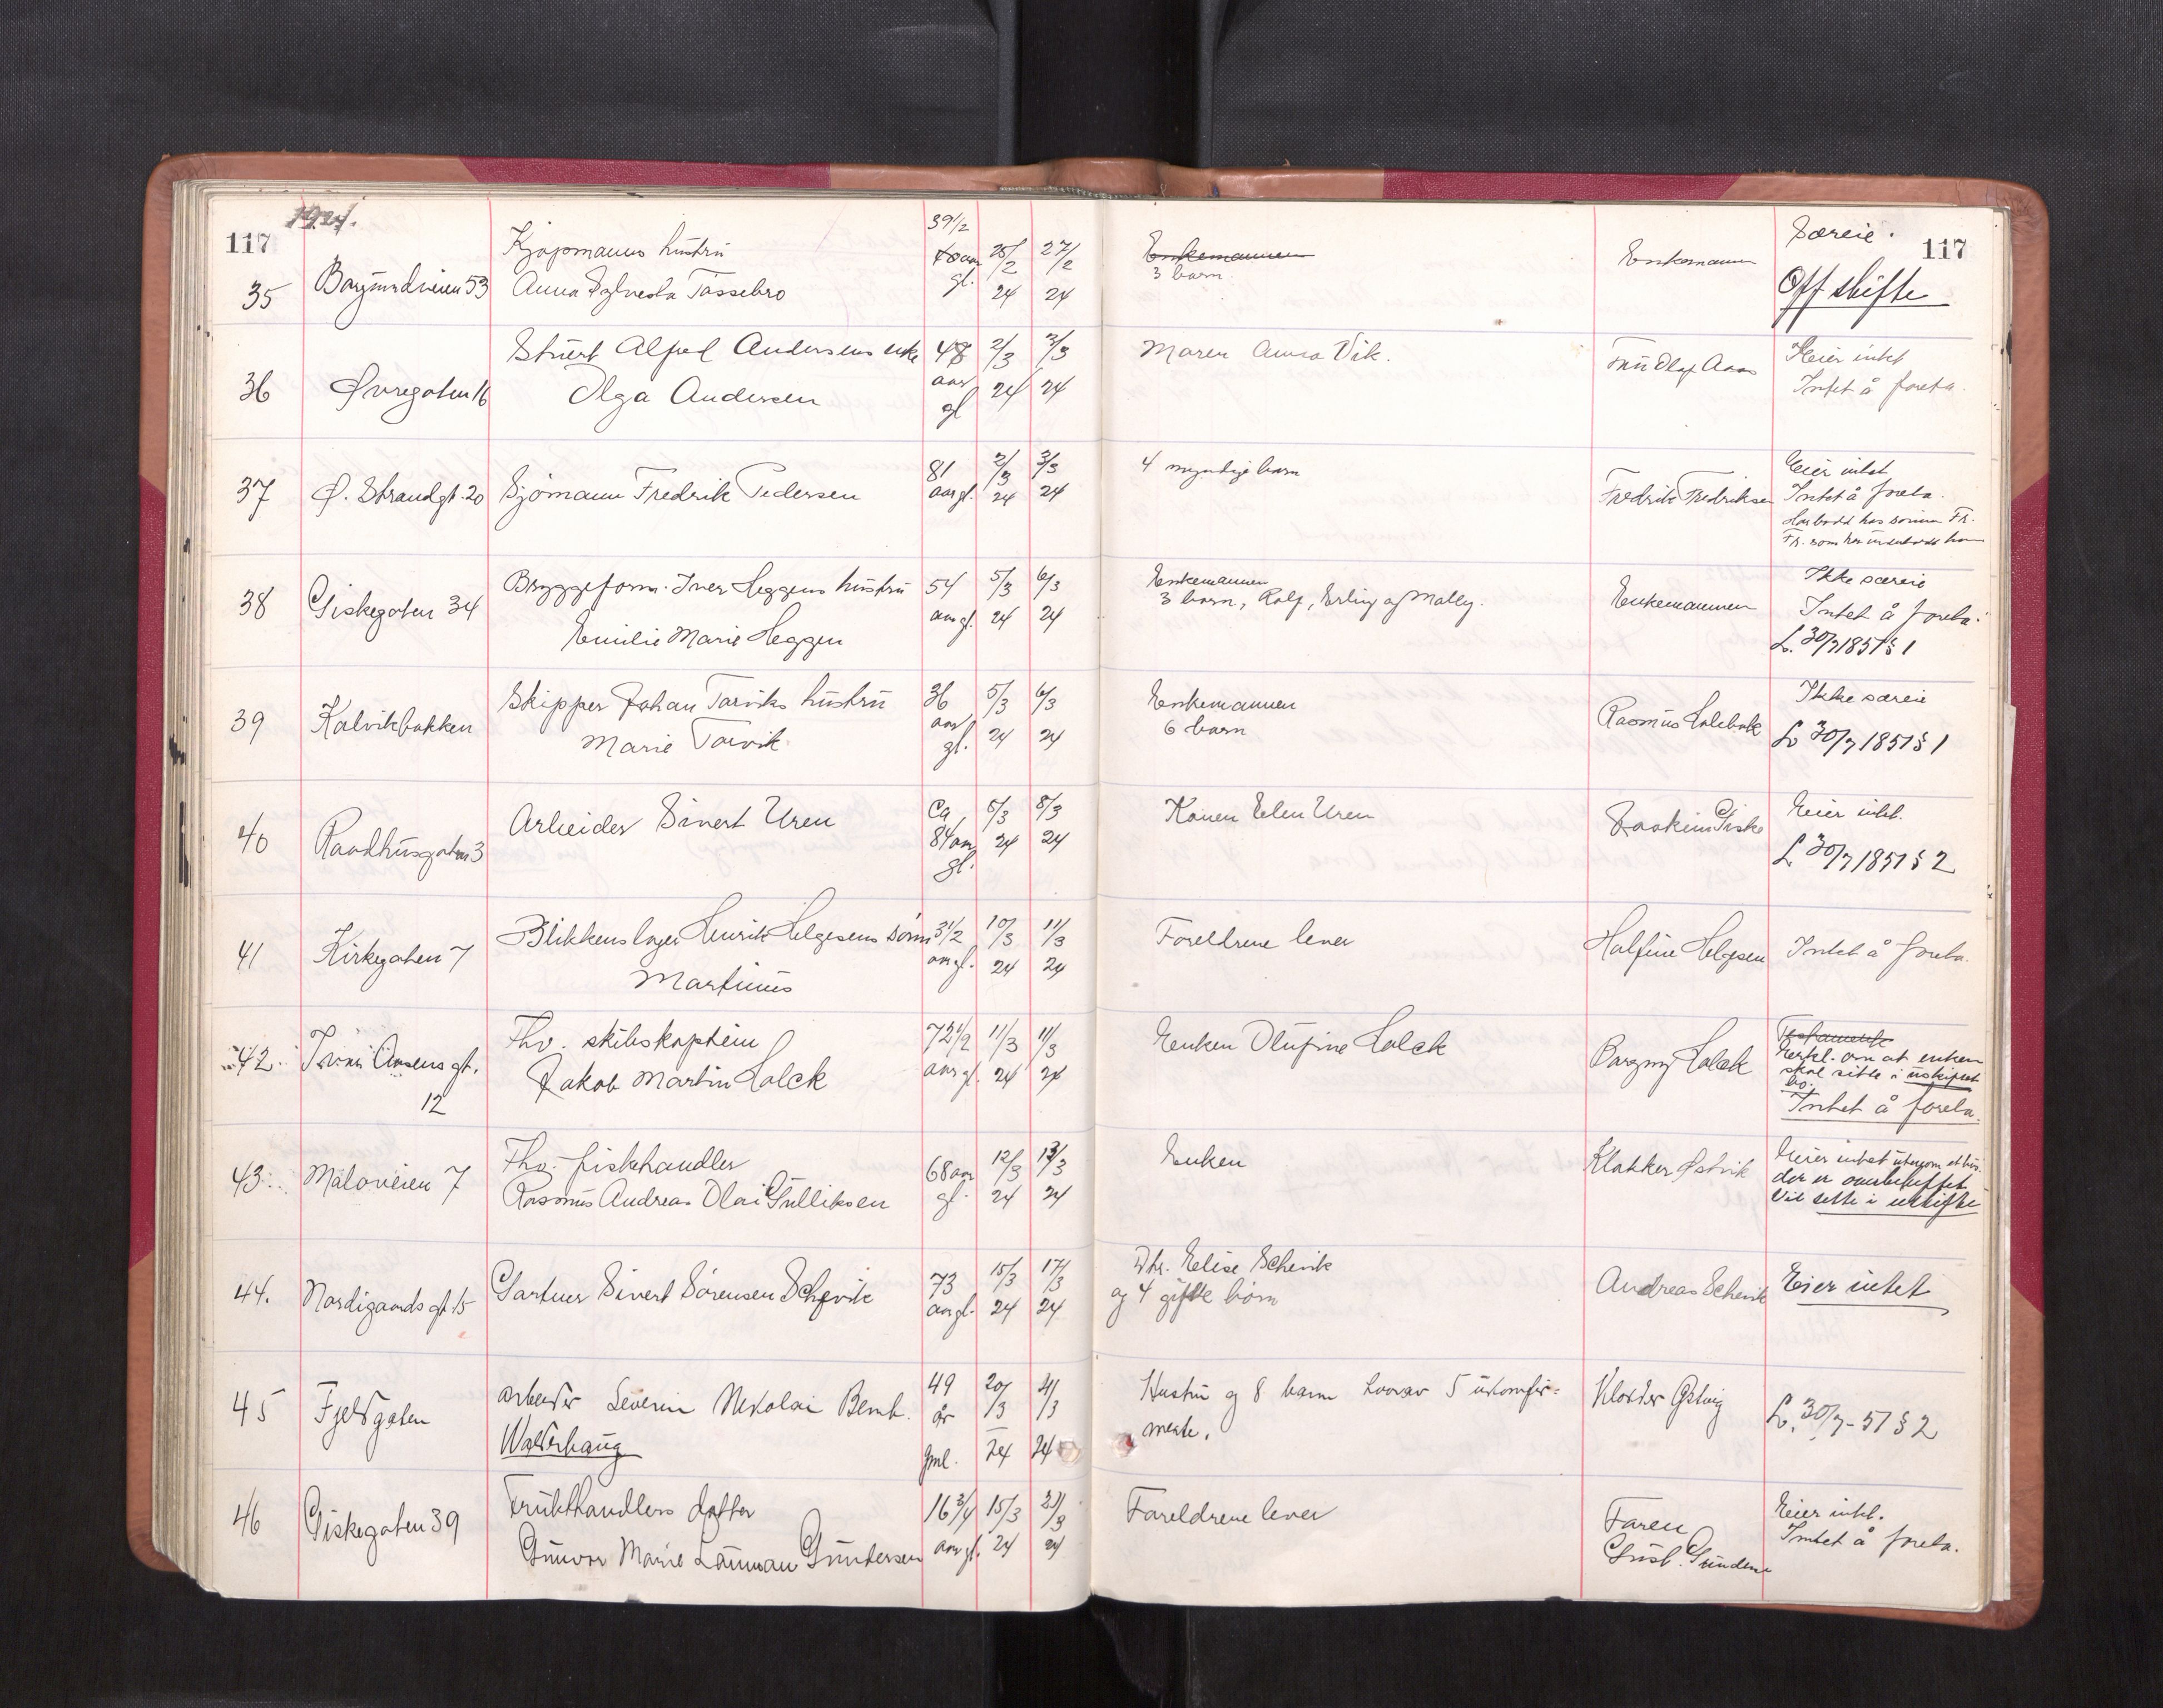 117
1924.
117
35
Borgundveien 53
Kjøpmanns hustru
Anna Sylvesta Tassebro
39 1/2
40 aar
gl.
25/2
24
27/2
24
Enkemannen
3 barn.
Enkemann
Særeie.
Off skifte
36
Øvregaten 16
Stuert Alfred Andersens enke
Olga Andersen
48
aar
gl
2/3
24
3/3
24
Maren Anna Vik.
Fru Olaf Aas
Eier intet
Intet å foreta.
37
Ø. Strandgt. 20
Sjømann Fredrik Pedersen
81
aar gl.
2/3
24
3/3
24
4 myndige barn
Fredrik Fredriksen
Eier intet
Intet å foreta.
Har bodd hos sønnen Fr.
Fr. som har underholdt ham
38
Giskegaten 34
Bryggeform. Iver Heggens hustru
Emilie Marie Heggen
54
aar gl.
5/3
24
6/3
24
Enkemannen
3 barn, Rolf, Erling og Molly.
Enkemannen
Ikke særeie
Intet å foreta.
L. 30/7 1851 § 1
39
Kalvikbakken
Skipper Johan Tarviks hustru
Marie Tarvik
36
aar
gl.
5/3
24
6/3
24
Enkemannen
6 barn
Rasmus Holebak
Ikke særeie
L. 30/7 1851 § 1
40
Raadhusgaten 3
Arbeider Sivert Uren
Ca
84 aar
gl.
5/3
24
8/3
24
Konen Elen Uren
Joakim Giske
Eier intet.
L 30/7 1851 § 2
41
Kirkegaten 7
Blikkenslager Henrik Helgesens sønn
Martinus
3 1/2
aar gl.
10/3
24
11/3
24
Foreldrene lever
Halfine Helgesen
Intet å foreta.
42.
Ivar Aasens gt.
12
Fhv. skibskaptein
Jakob Martin Holck
72 1/2
aar gl.
11/3
24
11/3
24
Enken Olufine Holck
Borgny Holck
Testamente
Erkl. om at enken
skal sitte i uskiftet
bo.
Intet å foreta.
43.
Moloveien 7
Fhv. fiskehandler
Rasmus Andreas Olai Gulliksen
68 aar
gl.
12/3
24
13/3
24
Enken
Klokker Østvik
Eier intet utenom et hus
der er overbeheftet
Vil sitte i uskifte
44.
Nordigaards gt 15
Gartner Sivert Sørensen Schevik
73
aar gl.
15/3
24
17/3
24
Dtr. Elise Schevik
og 4 gifte børn
Andreas Schevik
Eier intet
45
Fjeldgaten
arbeider Severin Nikolai Bernh.
Walderhaug
49
år
gml.
20/3
24
21/3
24
Hustru og 8 barn hvorav 5 ukonfir=
merte.
Klokker Østvig
L. 30/7-51 § 2
46
Giskegaten 39
Frukthandlers datter
Gunvor Marie Lauman Gundersen
16 3/4
aar gl.
15/3
24
21/3
24
Foreldrene lever
Faren
Gust. Gundersen
Eier intet.
Intet å foreta.